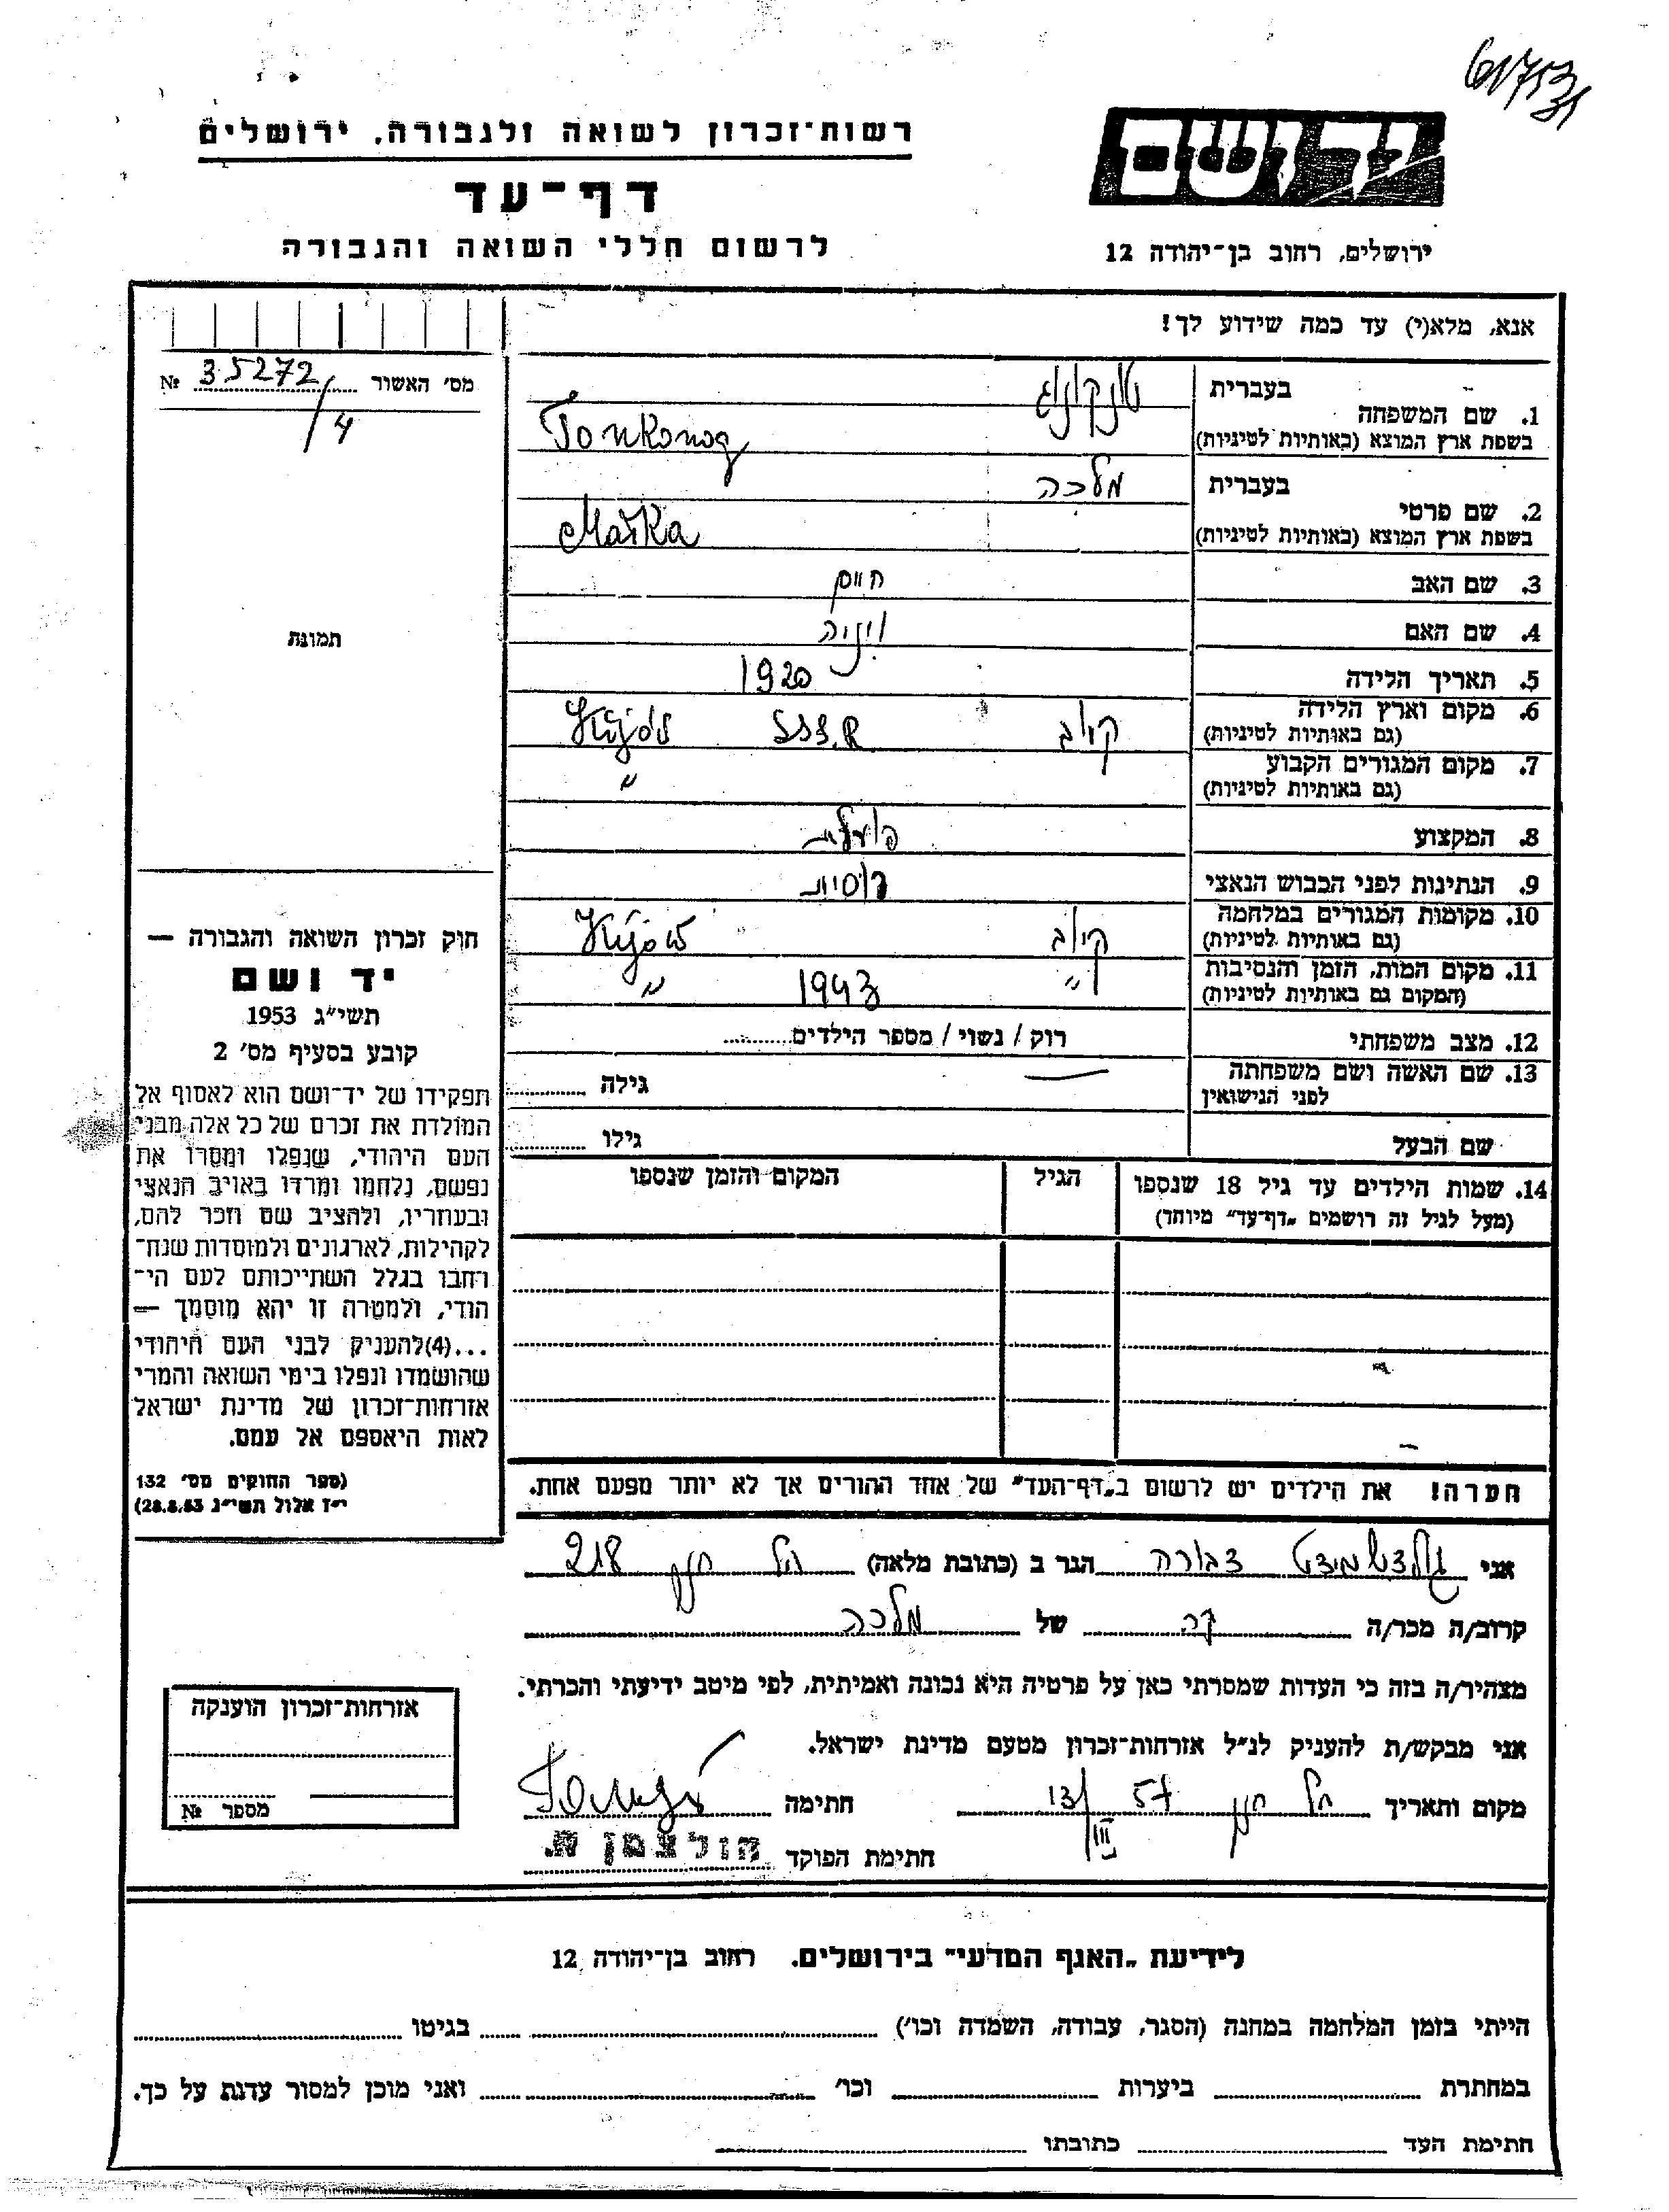 רשות־זכרון לשואה ולגבורה, ירושלים
דף־עד
לרשום חללי השואה והגבורה
יד ושם
ירושלים, רחוב בן־יהודה 12
אנא, מלא(י) עד כמה שידוע לך!
מס׳ האשור 35272/4 №
תמונה
1. שם המשפחה
בעברית טונקונוג
בשפת ארץ המוצא (באותיות לטיניות) Tonkonog
2. שם פרטי
בעברית מלכה
בשפת ארץ המוצא (באותיות לטיניות)
3. שם האב חיים
4. שם האם
5. תאריך הלידה 1920
6. מקום וארץ הלידה קיוב SSSR Kijów
(גם באותיות לטיניות)
7. מקום המגורים הקבוע "
(גם באותיות לטיניות)
8. המקצוע פועלת
9. הנתינות לפני הכבוש הנאצי רוסית
10. מקומות המגורים במלחמה קיוב Kijów
(גם באותיות לטיניות)
11. מקום המות, הזמן והנסיבות " 1943 "
(המקום גם באותיות לטיניות)
12. מצב משפחתי רוק / נשוי / מספר הילדים
13. שם האשה ושם משפחתה — גילה
לפני הנישואין
שם הבעל גילו
14. שמות הילדים עד גיל 18 שנספו הגיל המקום והזמן שנספו
(מעל לגיל זה רושמים „דף־עד״ מיוחד)
הערה! את הילדים יש לרשום ב„דף־העד״ של אחד ההורים אך לא יותר מפעם אחת.
חוק זכרון השואה והגבורה —
יד ושם
תשי״ג 1953
קובע בסעיף מס׳ 2
תפקידו של יד־ושם הוא לאסוף אל
המולדת את זכרם של כל אלה מבני
העם היהודי, שנפלו ומסרו את
נפשם, נלחמו ומרדו באויב הנאצי
ובעוזריו, ולהציב שם וזכר להם,
לקהילות, לארגונים ולמוסדות שנח־
רבו בגלל השתייכותם לעם הי־
הודי, ולמטרה זו יהא מוסמך —
...(4)להעניק לבני העם היהודי
שהושמדו ונפלו בימי השואה והמרי
אזרחות־זכרון של מדינת ישראל
לאות היאספם אל עמם.
(ספר החוקים מס׳ 132
י״ז אלול תשי״ג 28.8.53)
אני גולדשמידט דבורה הגר ב (כתובת מלאה) תל חנן 218
קרוב/ה מכר/ה של מלכה
מצהיר/ה בזה כי העדות שמסרתי כאן על פרטיה היא נכונה ואמיתית, לפי מיטב ידיעתי והכרתי.
אני מבקש/ת להעניק לנ״ל אזרחות־זכרון מטעם מדינת ישראל.
מקום ותאריך תל חנן 57 13/III חתימה
חתימת הפוקד הולצמן
אזרחות־זכרון הוענקה
מספר №
לידיעת „האגף המדעי״ בירושלים. רחוב בן־יהודה 12
הייתי בזמן המלחמה במחנה (הסגר, עבודה, השמדה וכו׳) בגיטו
במחתרת ביערות וכו׳ ואני מוכן למסור עדות על כך.
חתימת העד כתובתו